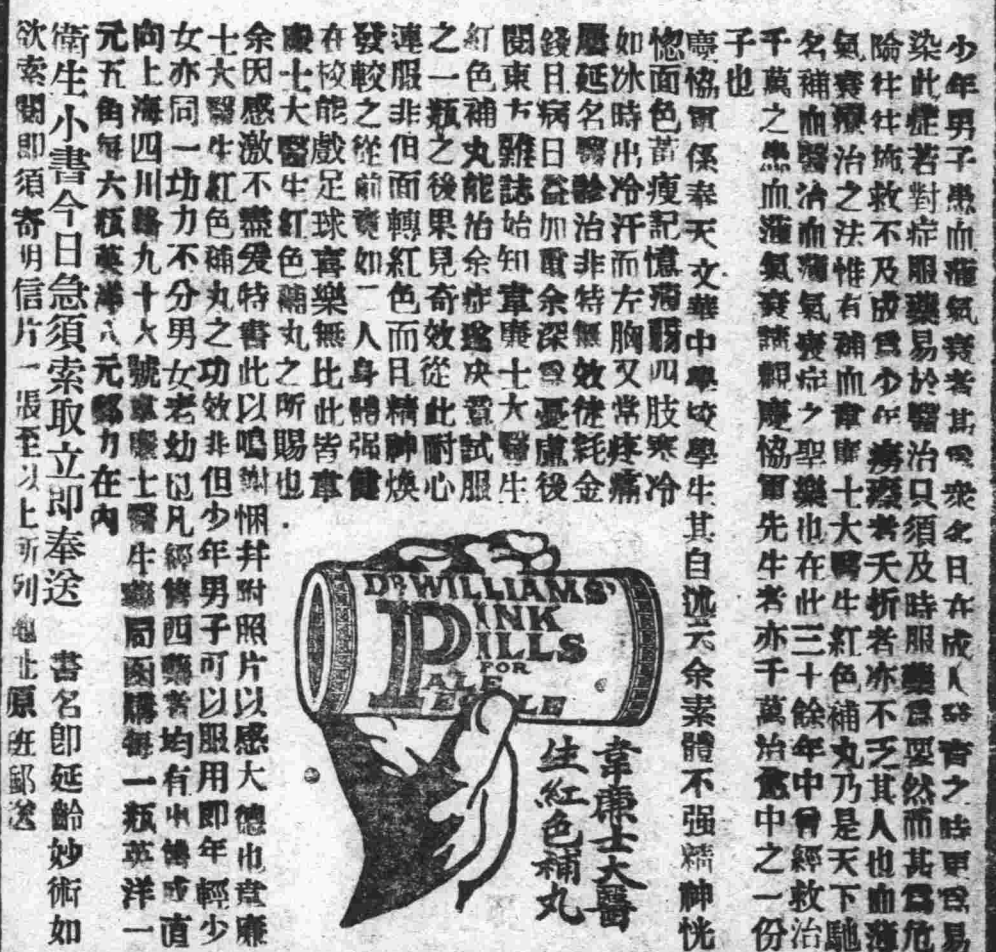 少年男子患血薄氣衰者其爲衆矣日在成人發育之時更爲易
染此症若對症服藥易於醫治只須及時服藥爲要然而甚爲危
險往往施救不及成爲少年癆瘵者夭折者亦不乏其人也血薄
氣衰療治之法惟有補血韋廉士大醫生紅色補丸乃是天下馳
名補血醫治血薄氣衰症之聖藥也在此三十餘年中曾經救治
千萬之患血薄氣衰請觀慶協軍先生者亦千萬治愈中之一份
子也
慶協軍係奉天文華中學校學生其自述云余素體不强精神恍
惚面色黃瘦記憶薄弱四肢寒冷
如冰時出冷汗而左胸又常疼痛
屢延名醫診治非特無效徒耗金
錢日病日益加重余深爲憂慮後
閱東方雜誌始知韋廉士大醫生
紅色補丸能治余症遂决意試服
之一瓶之後果見奇效從此耐心
連服非但面轉紅色而且精神煥
發較之從前實如二人身體强健
在校能戲足球喜樂無比此皆韋
廉士大醫生紅色補丸之所賜也
余因感激不盡爰特書此以鳴謝悃幷附照片以感大德也韋廉
士大醫生紅色補丸之功效非但少年男子可以服用即年輕少
女亦同一功力不分男女老幼也凡經售西藥者均有出售或直
向上海四川路九十六號韋廉士醫生藥局函購每一瓶英洋一
元五角每六瓶英洋八元郵力在內
衛生小書今日急須索取立即奉送 書名即延齡妙術如
欲索閱即須寄明信片一張至以上所列地址原班郵送
DR WILLIAMS'
PINK
PILLS
FOR
PALE
PEOPLE
韋廉士大醫
生紅色補丸